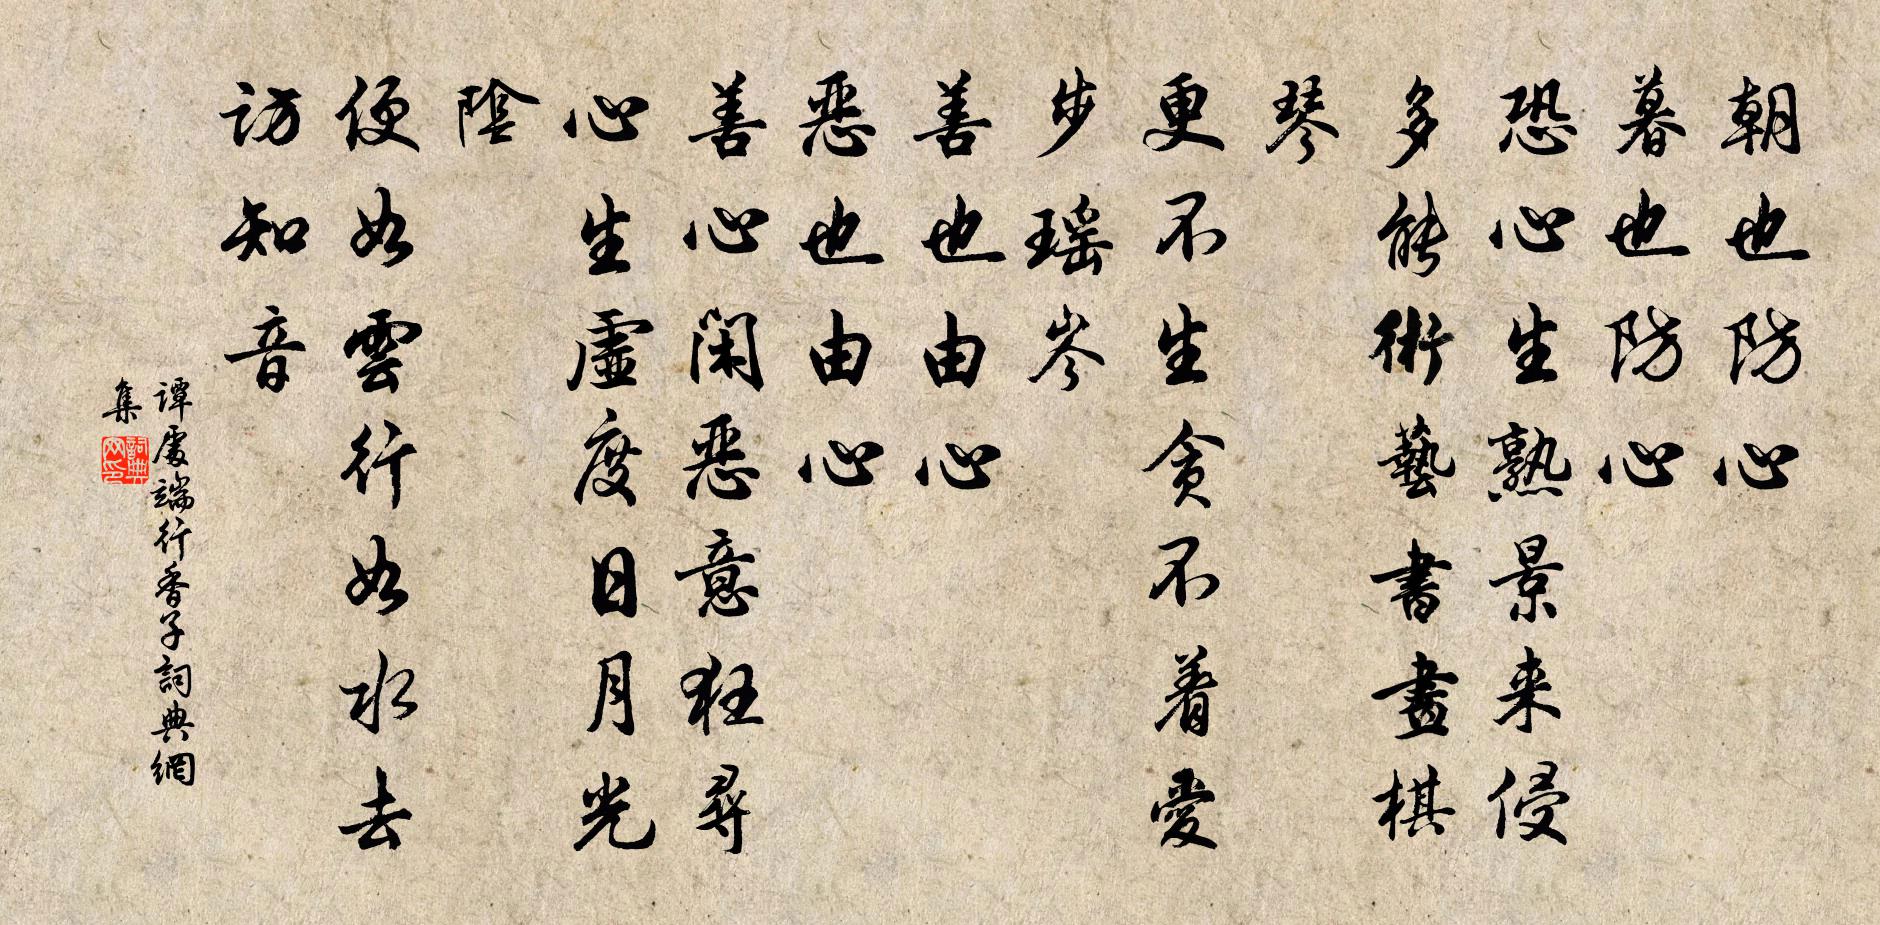 朝也防心
暮也防心
恐心生熟景来侵
多能術藝書畫棋
琴
更不生貪不着愛
步瑶岑
善也由心
惡也由心
善心閑惡意狂尋
心生虛度日月光
陰
便如雲行如水去
訪知音
譚處端行香子詞典網
集
詞典網印